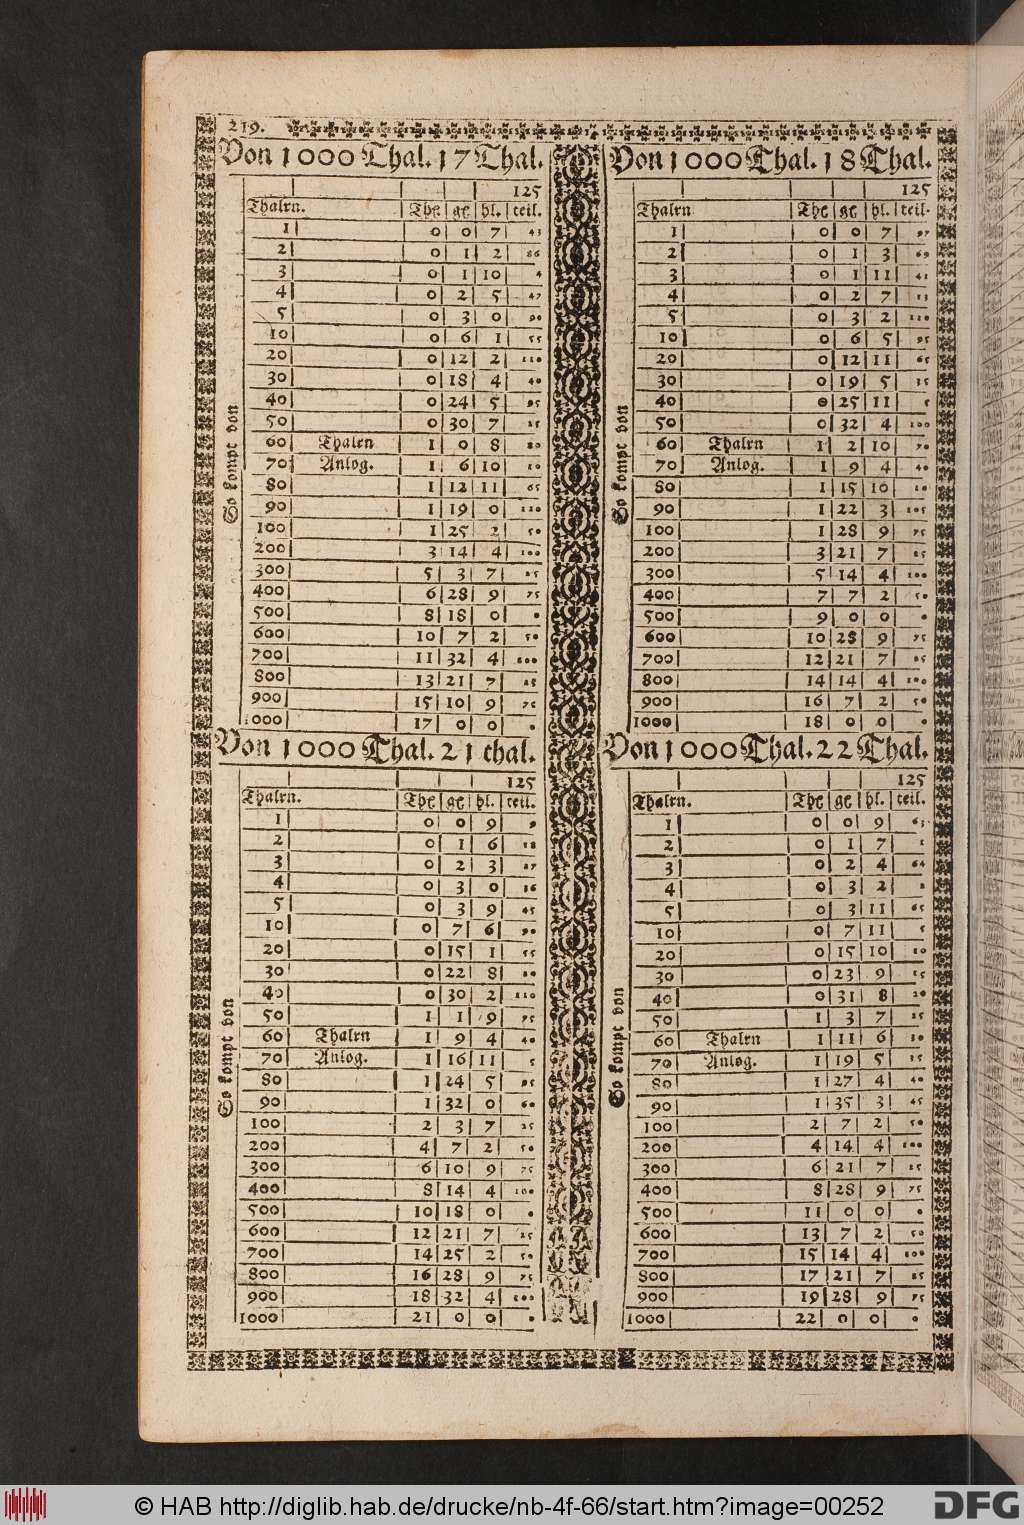 219.
Von 1000 Thal. 17 Thal.
125
Thalrn. Thl gl hl. teil.
1 0 0 7 43
2 0 1 2 86
3 0 1 10 4
4 0 2 5 47
5 0 3 0 90
10 0 6 1 55
20 0 12 2 110
30 0 18 4 40
40 0 24 5 95
50 0 30 7 25
60 Thalrn 1 0 8 80
70 Anlog. 1 6 10 10
80 1 12 11 65
90 1 19 0 120
100 1 25 2 50
200 3 14 4 100
300 5 3 7 25
400 6 28 9 75
500 8 18 0 0
600 10 7 2 50
700 11 32 4 100
800 13 21 7 25
900 15 10 9 75
1000 17 0 0 0
So kompt von
Von 1000 Thal. 18 Thal.
125
Thalrn Thl gl hl. teil.
1 0 0 7 97
2 0 1 3 69
3 0 1 11 41
4 0 2 7 13
5 0 3 2 110
10 0 6 5 95
20 0 12 11 65
30 0 19 5 35
40 0 25 11 5
50 0 32 4 100
60 Thalrn 1 2 10 70
70 Anlog. 1 9 4 40
80 1 15 10 10
90 1 22 3 105
100 1 28 9 75
200 3 21 7 25
300 5 14 4 100
400 7 7 2 50
500 9 0 0 0
600 10 28 9 75
700 12 21 7 25
800 14 14 4 100
900 16 7 2 50
1000 18 0 0 0
So kompt von
Von 1000 Thal. 21 thal.
125
Thalrn. Thl gl hl. teil.
1 0 0 9 9
2 0 1 6 18
3 0 2 3 27
4 0 3 0 36
5 0 3 9 45
10 0 7 6 90
20 0 15 1 55
30 0 22 8 20
40 0 30 2 110
50 1 1 9 75
60 Thalrn 1 9 4 40
70 Anlog. 1 16 11 5
80 1 24 5 95
90 1 32 0 60
100 2 3 7 25
200 4 7 2 50
300 6 10 9 75
400 8 14 4 100
500 10 18 0 0
600 12 21 7 25
700 14 25 2 50
800 16 28 9 75
900 18 32 4 100
1000 21 0 0 0
So kompt von
Von 1000 Thal. 22 Thal.
125
Thalrn. Thl gl hl. teil.
1 0 0 9 63
2 0 1 7 1
3 0 2 4 64
4 0 3 2 2
5 0 3 11 65
10 0 7 11 5
20 0 15 10 10
30 0 23 9 15
40 0 31 8 20
50 1 3 7 25
60 Thalrn 1 11 6 30
70 Anlog. 1 19 5 35
80 1 27 4 40
90 1 35 3 45
100 2 7 2 50
200 4 14 4 100
300 6 21 7 25
400 8 28 9 75
500 11 0 0 0
600 13 7 2 50
700 15 14 4 100
800 17 21 7 25
900 19 28 9 75
1000 22 0 0 0
So kompt von
© HAB http://diglib.hab.de/drucke/nb-4f-66/start.htm?image=00252
DFG